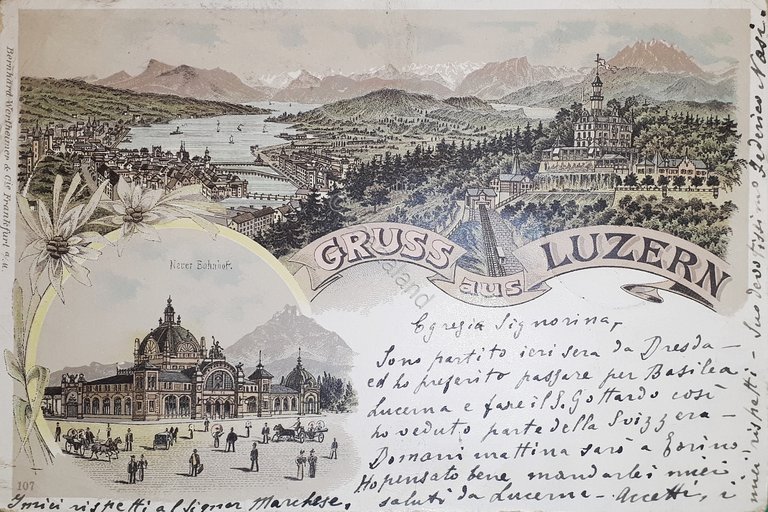 Bernhard Wertheimer & Cie Frankfurt a. M.
GRUSS
AUS
LUZERN
Neuer Bahnhof.
Egregia Signorina,
Sono partito ieri sera da Dresda -
ed ho preferito passare per Basilea
Lucerna e fare il S. Gottardo così
ho veduto parte della Svizzera -
Domani mattina sarò a Torino
Ho pensato bene mandarle i miei
saluti da Lucerna - Accetti, i
miei rispetti - Suo devotissimo Federico Nasi.
107
I miei rispetti al Signor Marchese.